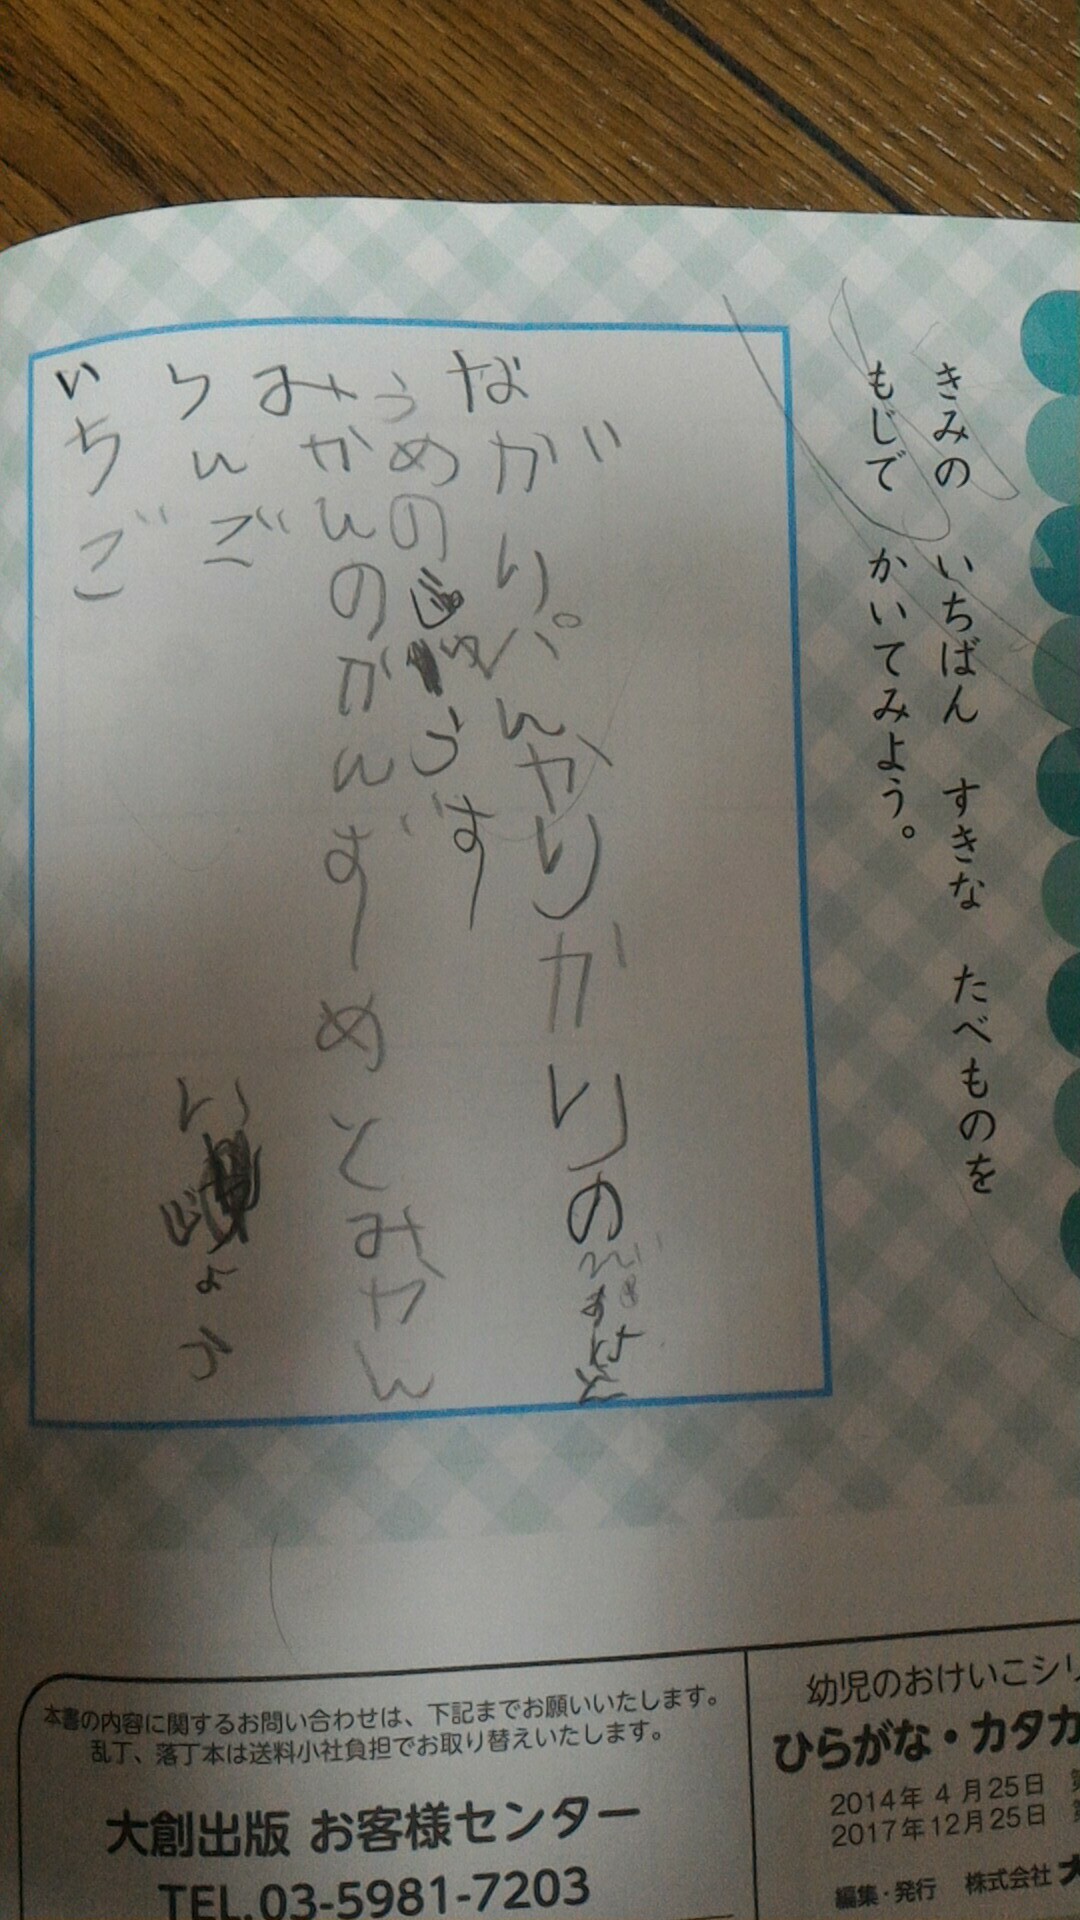 きみの いちばん すきな たべものを
もじで かいてみよう。
ながりぱんかりかりの
うめのじゅうす
みかんのかんずめとみかん
りんご
いじょう
いちご
本書の内容に関するお問い合わせは、下記までお願いいたします。
乱丁、落丁本は送料小社負担でお取り替えいたします。
大創出版 お客様センター
TEL.03-5981-7203
幼児のおけいこシリ
ひらがな・カタカ
2014年 4月25日
2017年12月25日
編集・発行 株式会社